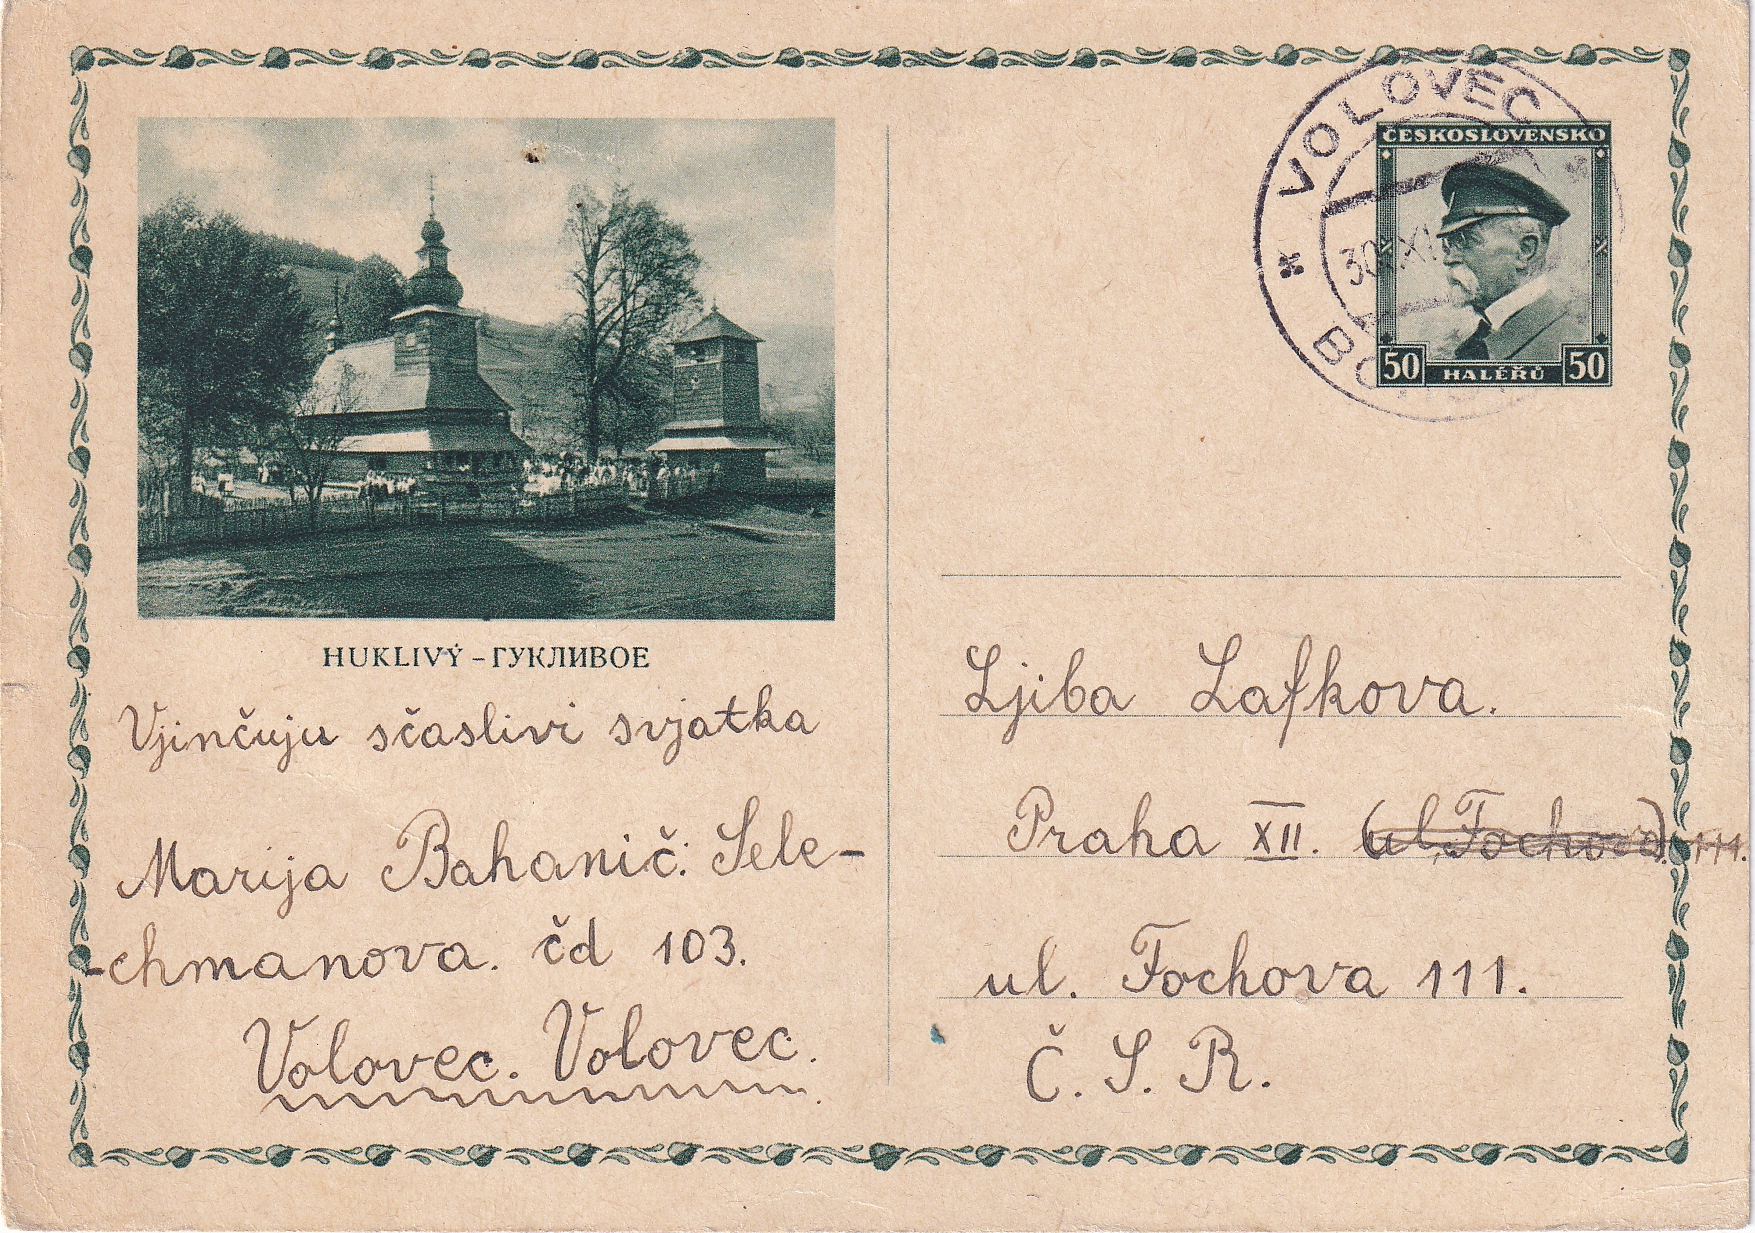 VOLOVEC
ČESKOSLOVENSKO
30. XI
50 HALÉŘŮ 50
HUKLIVÝ – ГУКЛИВОЕ
Vjinčuju sčaslivi svjatka
Marija Bahanič: Sele-
-chmanova. čd 103.
Volovec. Volovec.
Ljiba Lafkova.
Praha XII. (ul. Fochova) 111.
ul. Fochova 111.
Č. S. R.